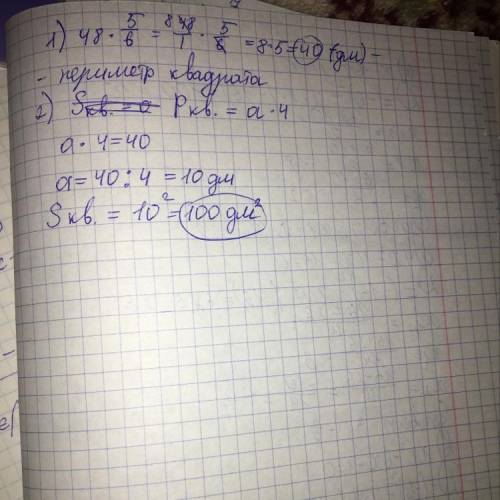 1) 48 · 5/6 = 8 48/1 · 5/6 = 8 · 5 = 40 (дм) -
- периметр квадрата
2) Sкв. = a Pкв. = a · 4
a · 4 = 40
a = 40 : 4 = 10 дм
Sкв. = 10² = 100 дм²